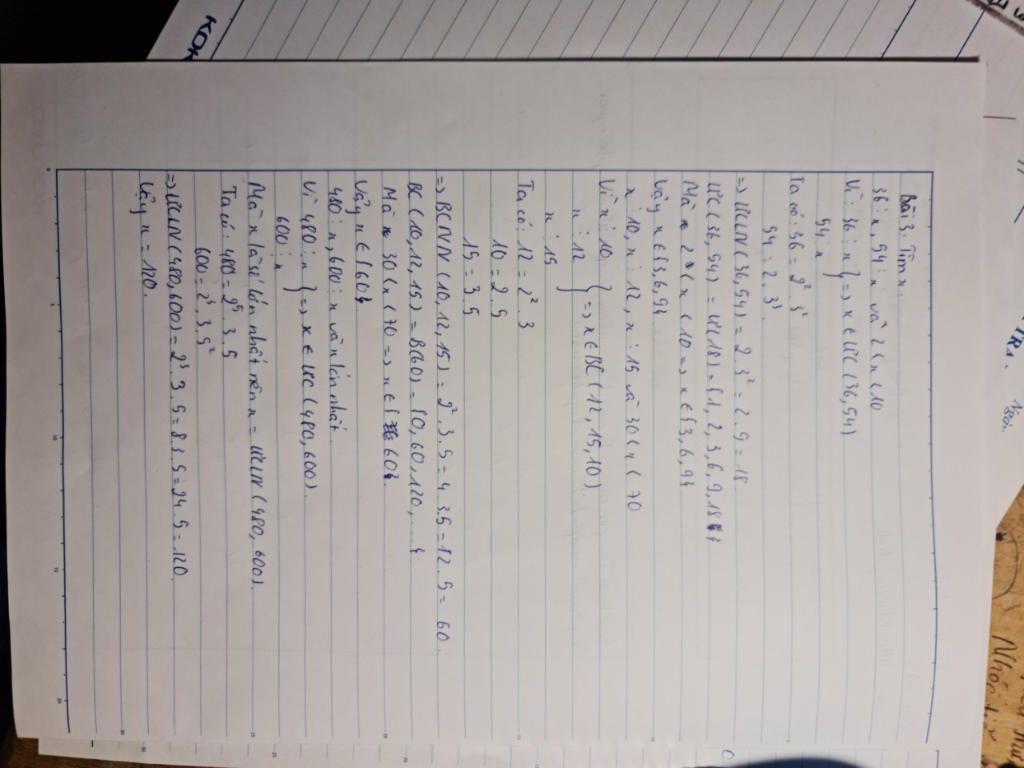 Bài 3. Tìm x.
36 ⋮ x, 54 ⋮ x và 2 < x < 10
Vì: 36 ⋮ x } => x ∈ ƯC (36, 54)
54 ⋮ x
Ta có: 36 = 2² . 3²
54 = 2 . 3³.
=> ƯCLN (36, 54) = 2 . 3² = 2 . 9 = 18
ƯC (36, 54) = Ư(18) = {1, 2, 3, 6, 9, 18}
Mà x 2 < x < 10 => x ∈ {3, 6, 9}
Vậy x ∈ {3, 6, 9}
x ⋮ 10, x ⋮ 12, x ⋮ 15 và 30 < x < 70
Vì x ⋮ 10
x ⋮ 12 } => x ∈ BC (12, 15, 10).
x ⋮ 15
Ta có: 12 = 2² . 3
10 = 2 . 5
15 = 3 . 5
=> BCNN (10, 12, 15) = 2² . 3 . 5 = 4 . 3 5 = 12 . 5 = 60.
BC (10, 12, 15) = B(60) = {0, 60, 120, ...}
Mà 30 < x < 70 => x ∈ {60}.
Vậy x ∈ {60}
480 ⋮ x, 600 ⋮ x và x lớn nhất.
Vì 480 ⋮ x } => x ∈ ƯC (480, 600).
600 ⋮ x
Mà x là số lớn nhất nên x = ƯCLN (480, 600).
Ta có: 480 = 2⁵ . 3 . 5
600 = 2³ . 3 . 5²
=> ƯCLN (480, 600) = 2³ . 3 . 5 = 8 . 3 . 5 = 24 . 5 = 120.
Vậy x = 120.